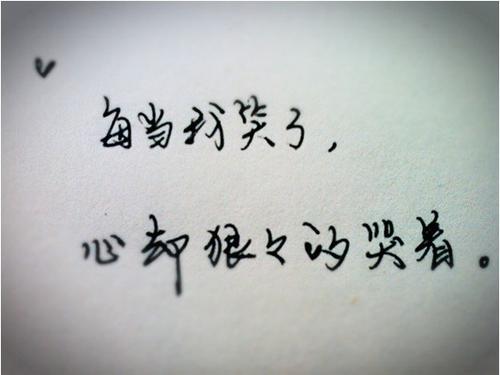 每当我笑了，
心却狠々的哭着。